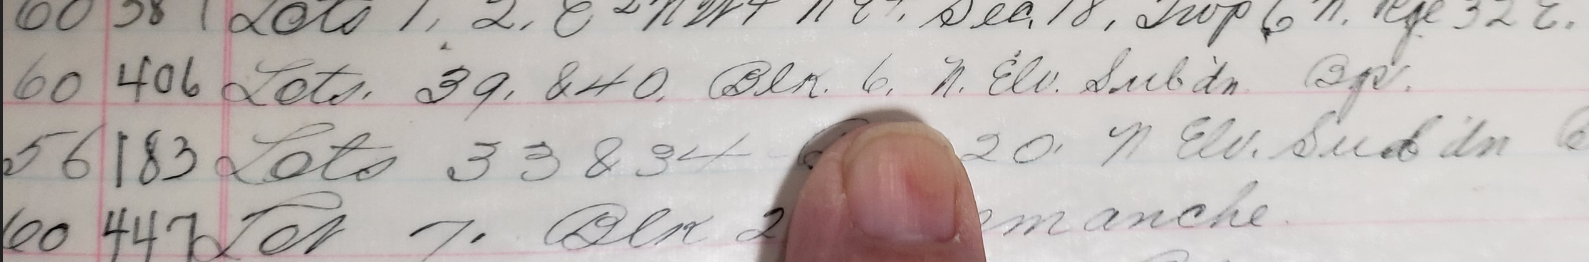 60 381 Lots 1, 2, E2NW4 N E4. Sec. 18, Twp 6 N. Rge 32 E.
60 406 Lots. 39. & 40. Blk. 6. N. Elv. Subdn
56 183 Lots 33 & 34 20. N Elv. Subdn
60 447 Lot 7. Blk 2 manche.